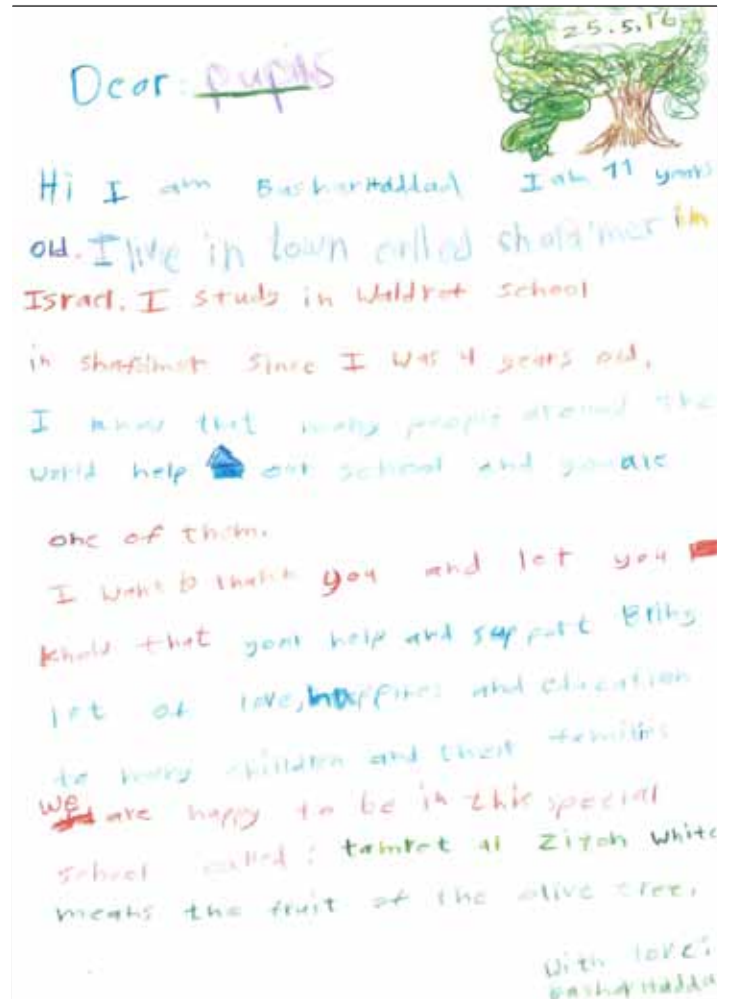 25.5.16
Dear: pupils
Hi I am Bashar Haddad I am 11 years
old. I live in town called in
Israel. I study in school
in since I was 4 years old,
I know that many people around the
world help our school and you are
one of them.
I want to thank you and let you
know that your help and support Bring
lot of love, happines and education
to many children and their families
We are happy to be in this special
school called: tamret al Zitoh white
means the fruit of the olive tree.
With love:
Bashar Hadda